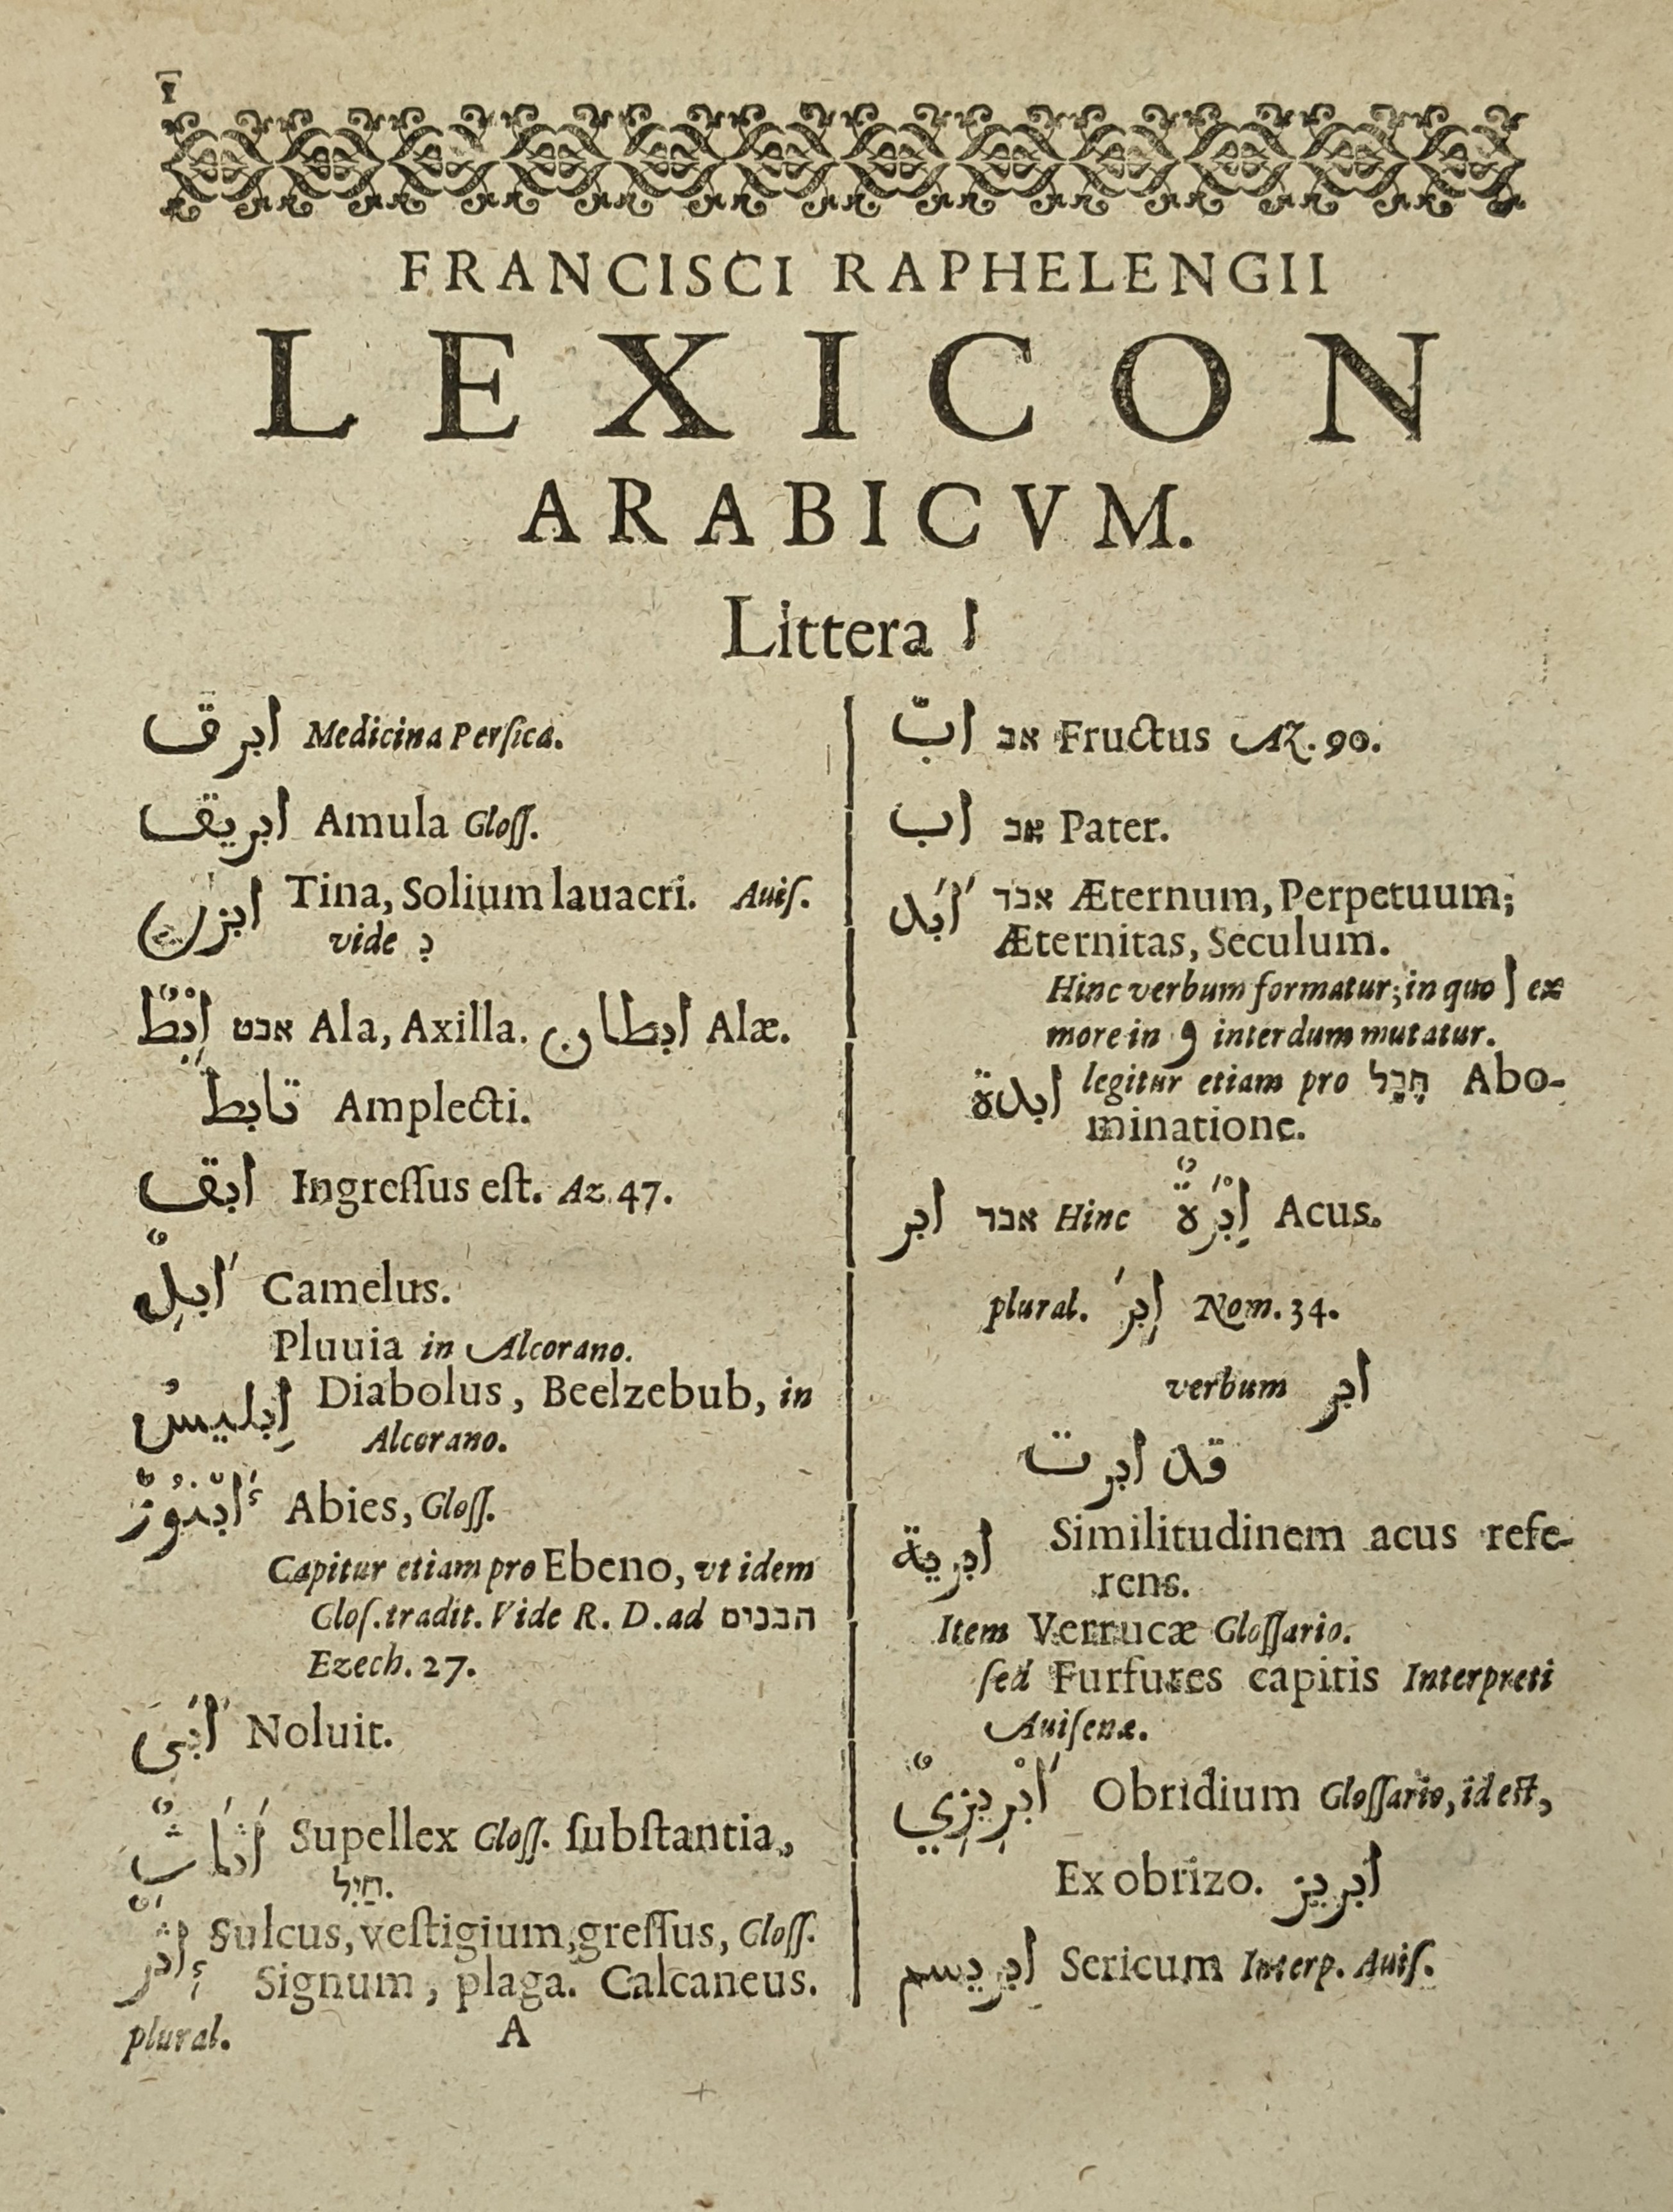 I
FRANCISCI RAPHELENGII
LEXICON
ARABICVM.
Littera ا
ابّ אב Fructus Az. 90.
اب אב Pater.
اَبَد אבד Æternum, Perpetuum;
Æternitas, Seculum.
Hinc verbum formatur; in quo ا ex
more in و interdum mutatur.
ابدة legitur etiam pro חֶבֶל Abo-
minatione.
ابر אבר Hinc اِبْرَةٌ Acus.
plural. اِبَر Nom. 34.
verbum ابر
قد ابرت
ابرية Similitudinem acus refe-
rens.
Item Verrucæ Gloſſario.
ſed Furfures capitis Interpreti
Auiſenæ.
اَبْرِيزِيٌّ Obridium Gloſſario, id eſt,
Ex obrizo. ابريز
ابريسم Sericum Interp. Auiſ.
ابرق Medicina Perſica.
ابريق Amula Gloſſ.
ابزن Tina, Solium lauacri. Auiſ.
vide
اِبْطٌ אבט Ala, Axilla. ابطان Alæ.
تابط Amplecti.
ابق Ingreſſus eſt. Az. 47.
اَبِلٌ Camelus.
Pluuia in Alcorano.
اِبليسُ Diabolus, Beelzebub, in
Alcorano.
أَبْنُوزٌ Abies, Gloſſ.
Capitur etiam pro Ebeno, vt idem
Gloſ. tradit. Vide R. D. ad הבנים
Ezech. 27.
اَبَىَ Noluit.
اَثَاثٌ Supellex Gloſſ. ſubſtantia,
חַיִל.
إثر Sulcus, veſtigium, greſſus, Gloſſ.
Signum, plaga. Calcaneus.
plural. A